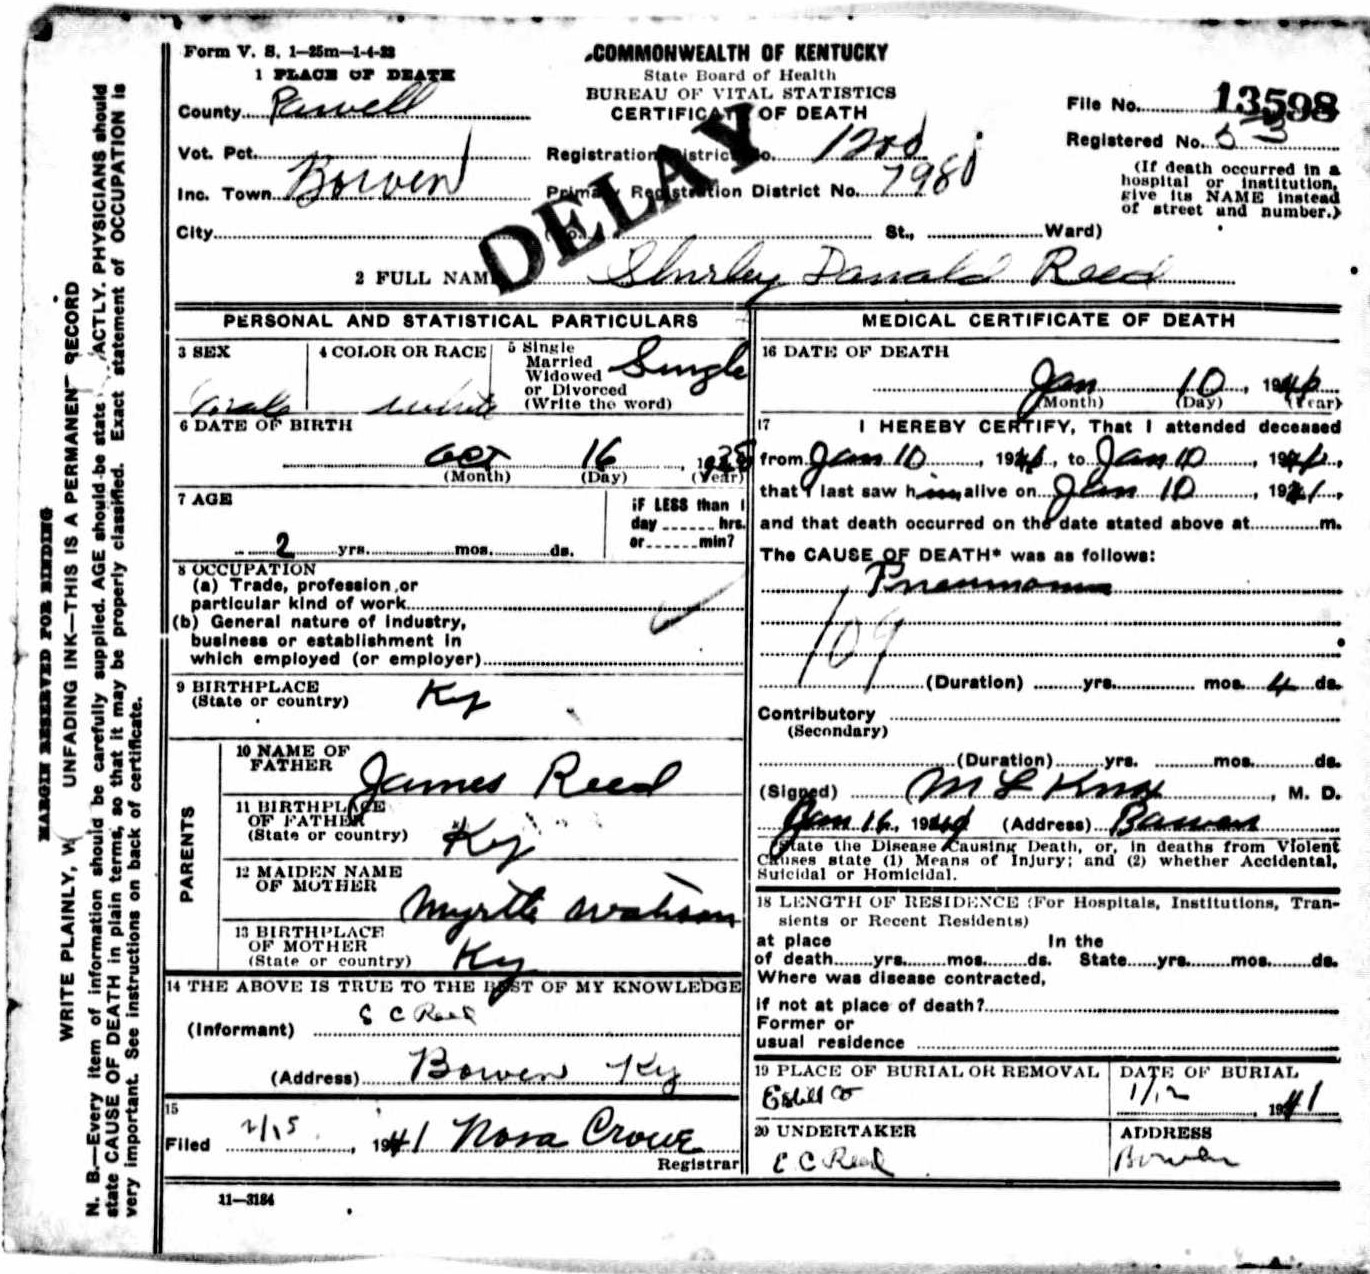 Form V. S. 1—25m—1-4-23
COMMONWEALTH OF KENTUCKY
State Board of Health
BUREAU OF VITAL STATISTICS
CERTIFICATE OF DEATH
DELAY
File No. 13598
Registered No. 53
(If death occurred in a
hospital or institution,
give its NAME instead
of street and number.)
1 PLACE OF DEATH
County Powell
Vot. Pct.
Inc. Town Bowen
City
Registration District No. 1200
Primary Registration District No. 7980
(No. St., Ward)
2 FULL NAME Shirley Donald Reed
PERSONAL AND STATISTICAL PARTICULARS
3 SEX
Male
4 COLOR OR RACE
White
5 Single
Married
Widowed
or Divorced
(Write the word)
Single
6 DATE OF BIRTH
Oct 16, 1938
(Month) (Day) (Year)
7 AGE
2 yrs. mos. ds.
IF LESS than 1
day hrs.
or min?
8 OCCUPATION
(a) Trade, profession or
particular kind of work
(b) General nature of industry,
business or establishment in
which employed (or employer)
9 BIRTHPLACE
(State or country)
Ky
PARENTS
10 NAME OF
FATHER
James Reed
11 BIRTHPLACE
OF FATHER
(State or country)
Ky
12 MAIDEN NAME
OF MOTHER
Myrtle Watson
13 BIRTHPLACE
OF MOTHER
(State or country)
Ky
14 THE ABOVE IS TRUE TO THE BEST OF MY KNOWLEDGE
(Informant) S C Reed
(Address) Bowen Ky
15
Filed 2/15, 1941 Nora Crowe
Registrar
11—3184
MEDICAL CERTIFICATE OF DEATH
16 DATE OF DEATH
Jan 10, 194
(Month) (Day) (Year)
17 I HEREBY CERTIFY, That I attended deceased
from Jan 10, 194, to Jan 10, 194,
that I last saw him alive on Jan 10, 1941,
and that death occurred on the date stated above at m.
The CAUSE OF DEATH* was as follows:
Pneumonia
109
(Duration) yrs. mos. 4 ds.
Contributory
(Secondary)
(Duration) yrs. mos. ds.
(Signed) M L Knox, M. D.
Jan 16, 194 (Address) Bowen
*State the Disease Causing Death, or, in deaths from Violent
Causes state (1) Means of Injury; and (2) whether Accidental,
Suicidal or Homicidal.
18 LENGTH OF RESIDENCE (For Hospitals, Institutions, Tran-
sients or Recent Residents)
at place In the
of death yrs. mos. ds. State yrs. mos. ds.
Where was disease contracted,
if not at place of death?
Former or
usual residence
19 PLACE OF BURIAL OR REMOVAL
Estill Co
DATE OF BURIAL
1/12, 1941
20 UNDERTAKER
C Reed
ADDRESS
Bowen
MARGIN RESERVED FOR BINDING
WRITE PLAINLY, UNFADING INK—THIS IS A PERMANENT RECORD
N. B.—Every item of information should be carefully supplied. AGE should be state ACTLY. PHYSICIANS should
state CAUSE OF DEATH in plain terms, so that it may be properly classified. Exact statement of OCCUPATION is
very important. See instructions on back of certificate.